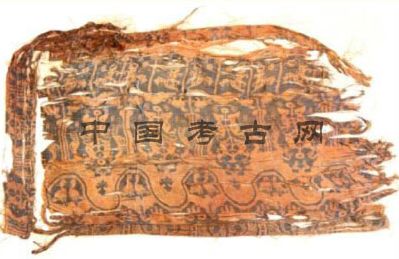 中国考古网